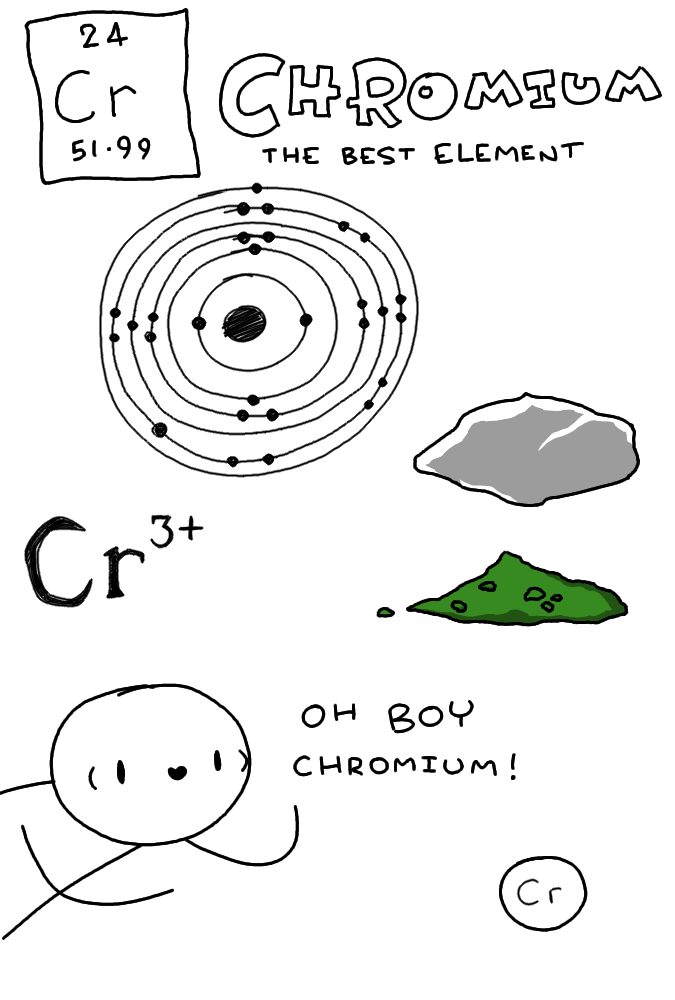 24
Cr
51.99
CHROMIUM
THE BEST ELEMENT
Cr3+
OH BOY
CHROMIUM!
Cr